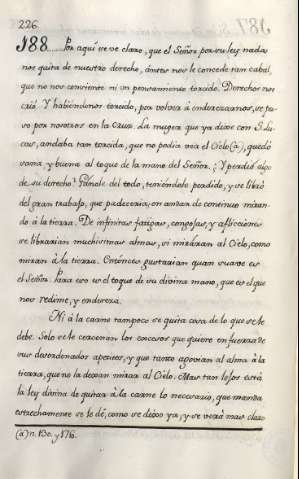 226.
188......Por aquí se ve claro, que el Señor por su ley nada
nos quita de nuestro derecho, ántes nos le concede tan cabal,
que no nos consiente ni un pensamiento torcido. Derechos nos
crió. Y habiendonos torcido, por volver á enderezarnos, se pu-
so por nosotros en la cruz. La muger que ya dixe con S. Lu-
cas, andaba tan torcida, que no podia ver el Cielo (a), quedó
sana, y buena al toque de la mano del Señor. ¿Y perdió algo
de su derecho? Gánale del todo, teniéndole perdido, y se libró
del gran trabajo, que padeceria, en andar de continuo miran-
do á la tierra. De infinitas fatigas, congojas, y aflicciones
se librarian muchísimas almas, si miráran al Cielo, como
miran á la tierra. Entónces gustarian quan suave es
el Señor. Para eso es el toque de su divina mano, que es el que
nos redime, y endereza.
Ni á la carne tampoco se quita cosa de lo que se le
debe. Solo se le cercenan los excesos que quiere en fuerza de
sus desordenados apetitos, y que tanto agovian al alma á la
tierra, que no la dexan mirar al Cielo. Mas tan lejos está
la ley divina de quitar á la carne lo necesario, que manda
estrechamente se le dé, como se dixo ya, y se verá mas claro
(a) n. 130. y 176.